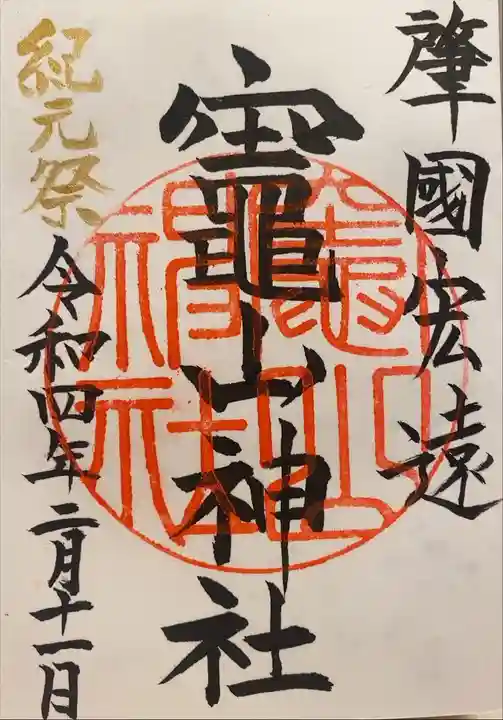 肇國宏遠
竈山神社
紀元祭
令和四年二月十一日
竈山神社